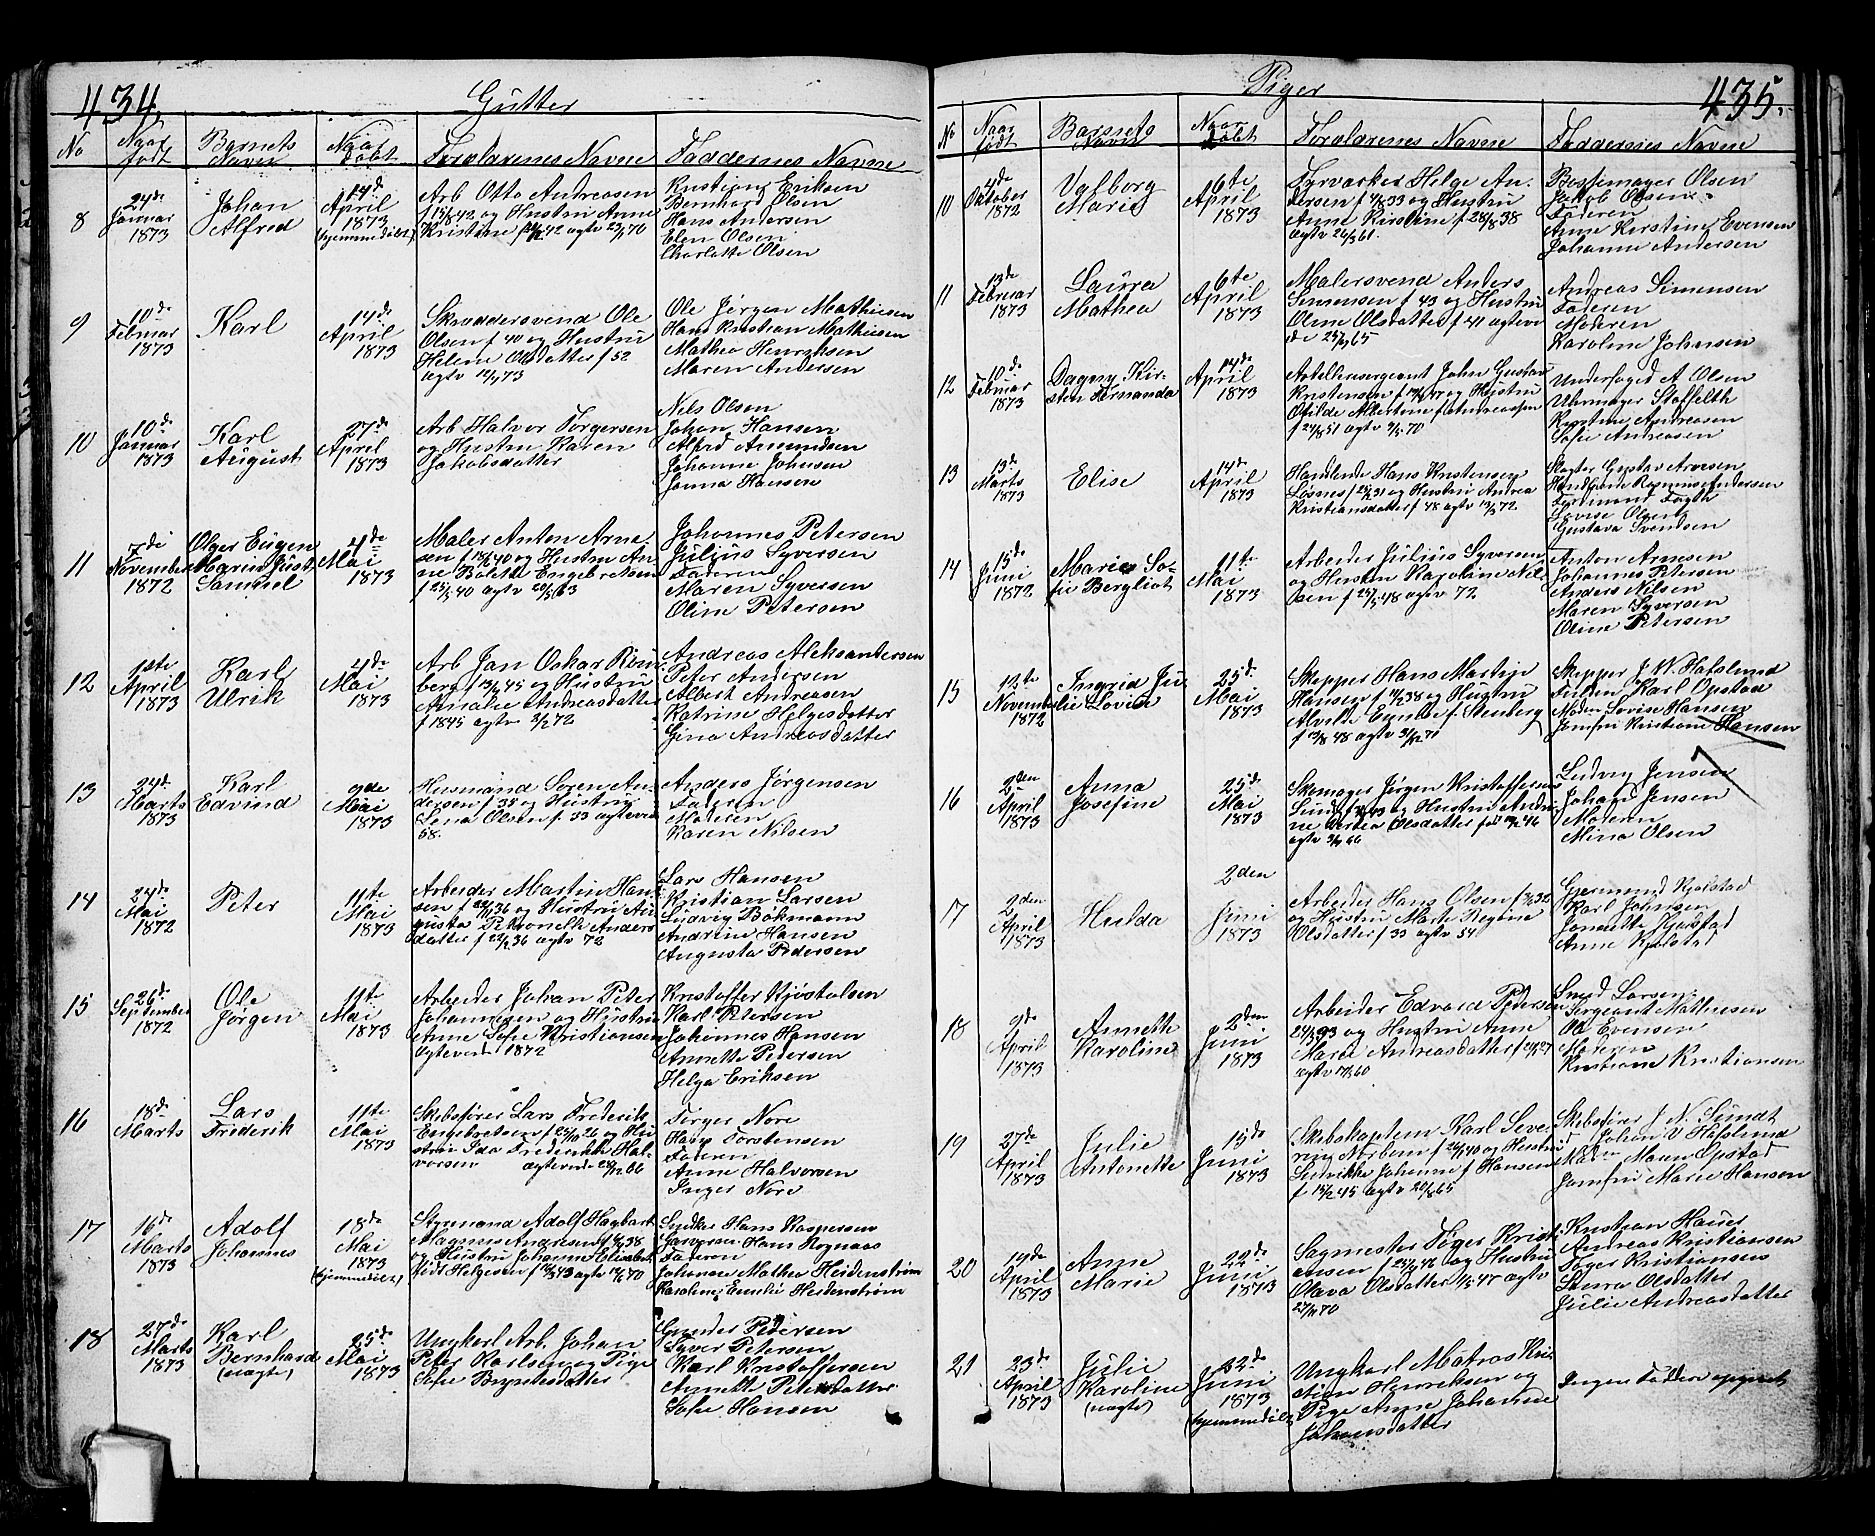 434.
Gutter
No
Naar født
Barnets Navn
Naar Døbt
Forældrenes Navne
Faddernes Navne
8
24de Januar 1873
Johan Alfred
14de April 1873 (hjemmedøbt)
Arb Otto Andreasen
f 15/8 42 og Hustru Anne
Kristine f 42 agtv 23/1 70
Kristiane Eriksen
Bernhard Olsen
Hans Andersen
Elen Olsen
Charlotte Olsen
9
10de Februar 1873
Karl
14de April 1873
Skræddersvend Ole
Olsen f 40 og Hustru
Helene Olsdatter f 52
agtv 12/1 73
Ole Jørgen Mathiesen
Hans Kristian Mathiesen
Mathea Henriksen
Maren Andersen
10
10de Januar 1873
Karl August
27de April 1873
Arb Halvor Torgersen
og Hustru Karen
Jakobsdatter
Nils Olsen
Johan Hansen
Alfred Amundsen
Johanne Johnsen
Janna Hansen
11
7de November 1872
Olger Eugen
Marin Just
Samuel
4de Mai 1873
Maler Anton Arne-
sen f 15/6 40 og Hustru An-
ne Bolette Engebretsen
f 23/5 40 agtv 20/5 63
Johannes Petersen
Julius Syversen
Faderen
Maren Syversen
Oline Petersen
12
1ste April 1873
Karl Ulrik
4de Mai 1873
Arb Jan Oskar
berg f 13/2 45 og Hustru
Amalie Andreasdatter
f 1845 agtv 2/2 72
Andreas Aleksandersen
Peter Andersen
Albert Andreasen
Katrine Helgesdatter
Gina Andreasdatter
13
24de Marts 1873
Karl Edvind
9de Mai 1873
Husmand Søren An-
dersen f 35 og Hustru
Lena Olsen f 33 agtvie
58.
Anders Jørgensen
Faderen
Moderen
Karen Nilsen
14
24de Mai 1872
Peter
11te Mai 1873
Arbeider Martin Han-
sen f 22/11 36 og Hustru Au-
gusta Petronelle Anders
datter f 22/2 36 agtv 72
Lars Hansen
Kristian Larsen
Ludvig Bøkmann
Andrine Hansen
Augusta Pedersen
15
26de September 1872
Ole Jørgen
11te Mai 1873
Arbeider Johan Peter
Johannesen og Hustru
Anne Sofie Kristiansen
Agteviede 1872
Kristoffer Kjøstolsen
Karl Petersen
Johannes Hansen
Annette Pedersen
Helga Eriksen
16
18de Marts
Lars Frederik
11te Mai 1873
Skibsfører Lars Frederik
Engebretsen f 25/10 26 og Hu
stru Ida Frederikke Hal-
vorsen agteviede 28/12 66
Torger Nore
Hans Torstensen
Faderen
Anne Halvorsen
Inger Nore
17
16de Marts 1873
Adolf Johannes
18de Mai 1873 (hjemmedøbt)
Styrmand Adolf Hagbart
Magnus Andresen f 38
og Hustru Johanne Elisabet
Vidt Helgesen f 43 agtv 70
Hans Kaspersen
Hans Rognaas
Faderen
Johanne Mathea Heidenstrøm
Karoline Emilie Heidenstrøm
18
27de Marts 1873
Karl Bernhard (uægte)
25de Mai 1873
Ungkarl Arb. Johan
Peter Karlsen og Pige
Sofie Bryntesdatter
Gunder Pedersen
Syver Petersen
Karl Kristoffersen
Annette Petersdatter
Sofie Hansen
435.
Piger
No
Naar født
Barnets Navn
Naar Døbt
Forældrenes Navne
Faddernes Navne
10
4de Oktober 1872
Valborg Marie
6te April 1873
Fyrvarker Helge An-
dersen f 4/8 33 og Hustru
Anne Kirstine f 28/8 38
agtv 26/3 61.
Bøssemager Olsen
Jakob Olsen
Faderen
Anne Kirstine Evensen
Johanne Andersen
11
13de Februar 1873
Laura Mathea
6te April 1873
Malersvend Anders
Simensen f 43 og Hustru
Oline Olsdatter f 41 agtvie
de 65
Andreas Simensen
Faderen
Moderen
Karoline Johnsen
12
10de Februar 1873
Dagny Kir-
sten Fernanda
14de April 1873
Artillerisergeant John Gustav
Kristensen f 47 og Hustru
Otilde Albertine f Andreassen
f 24/8 51 agtv 3/5 70
Underfoged A Olsen
Uhrmager Staffeldt
Kirstine Andreasen
Sofie Andreasen
13
13de Marts 1873
Elise
14de April 1873
Handlende Hans Kristensen
Løsnes f 31 og Hustru Andrea
Kristiansdatter f 48 agtv 72
Slagter Gustav Arvesen
Handlende Rasmus Andersen
Ferdinand Fagth
Lovise Olsen
Gustava Svendsen
14
15de Juni 1872
Marie So-
fie Bergliot
11te Mai 1873
Arbeider Julius Syversen
og Hustru Karoline Nil-
sen f 25/5 48 agtv 72
Anton Arnesen
Johannes Petersen
Anders Nilsen
Maren Syversen
Oline Petersen
15
12te November 1872
Ingrid Ju-
lie Lovise
25de Mai 1873
Skipper Hans Martin
Hansen f 38 og Hustru
Alvilde Emilie f. Stenberg
f 13/8 48 agtv 31/12 71
Skipper J. W. Hafslund
Karl Opstad
Lovise Hansen
Jomfru Kristiane Hansen
16
2den April 1873
Anna Josefine
25de Mai 1873
Skomager Jørgen Kristoffersen
Lund f 43 og Hustru Andri-
ne Dortea Olsdatter f 46
agtv 3/4 66
Ludvig Jensen
Johan Jensen
Moderen
Mina Olsen
17
2den April 1873
Hulda
2den Juni 1873
Arbeider Hans Olsen f 32
og Hustru Marte Regine
Olsdatter f 33 agtv 54
Gjermund Kjølstad
Karl Johnsen
Jonette Kjølstad
Anne Kjølstad
18
9de April 1873
Annette Karoline
2den Juni 1873
Arbeider Edvard Pedersen
24/3 93 og Hustru Anne
Marie Andreasdatter f 27
agtv 60
Smed Larsen
Sergeant Mathiesen
Ole Evensen
Moderen
Kristiane Kristiansen
19
27de April 1873
Julie Antonette
15de Juni 1873
Skibskaptein Karl Seve-
rin Norbom f 40 og Hustru
Ludvikke Johanne f Hansen
f 15/2 45 agtv 20/8 65
Skibsfører J N Sundt
Johan V Hafslund
Maren Opstad
Jomfru Marie Hansen
20
14de April 1873
Anne Marie
22de Juni 1873
Sagmester Tøger Kristi-
ansen f 46 og Hustru
Olava Olsdatter f 47 agtv
27/11 70
Kristian Hauer
Andreas Kristiansen
Tøger Kristiansen
Laura Olsdatter
Julie Andreasdatter
21
23de April 1873
Julie Karoline (uægte)
22de Juni 1873 (hjemmedøbt)
Ungkarl Matros Kri-
stian Henriksen og
Pige Anne Johanne
Johansdatter
Ingen Faddere opgivet